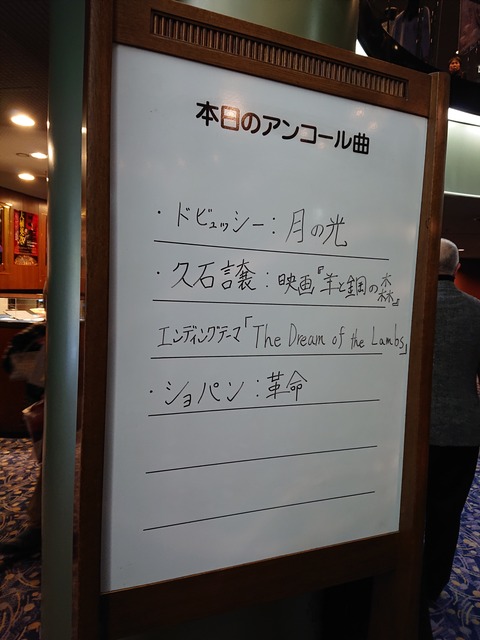 本日のアンコール曲
・ドビュッシー：月の光
・久石譲：映画『羊と鋼の森』
エンディングテーマ「The Dream of the Lambs」
・ショパン：革命